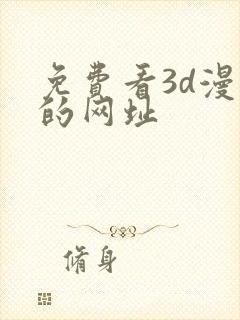 免費看3d漫
的网址
脩身